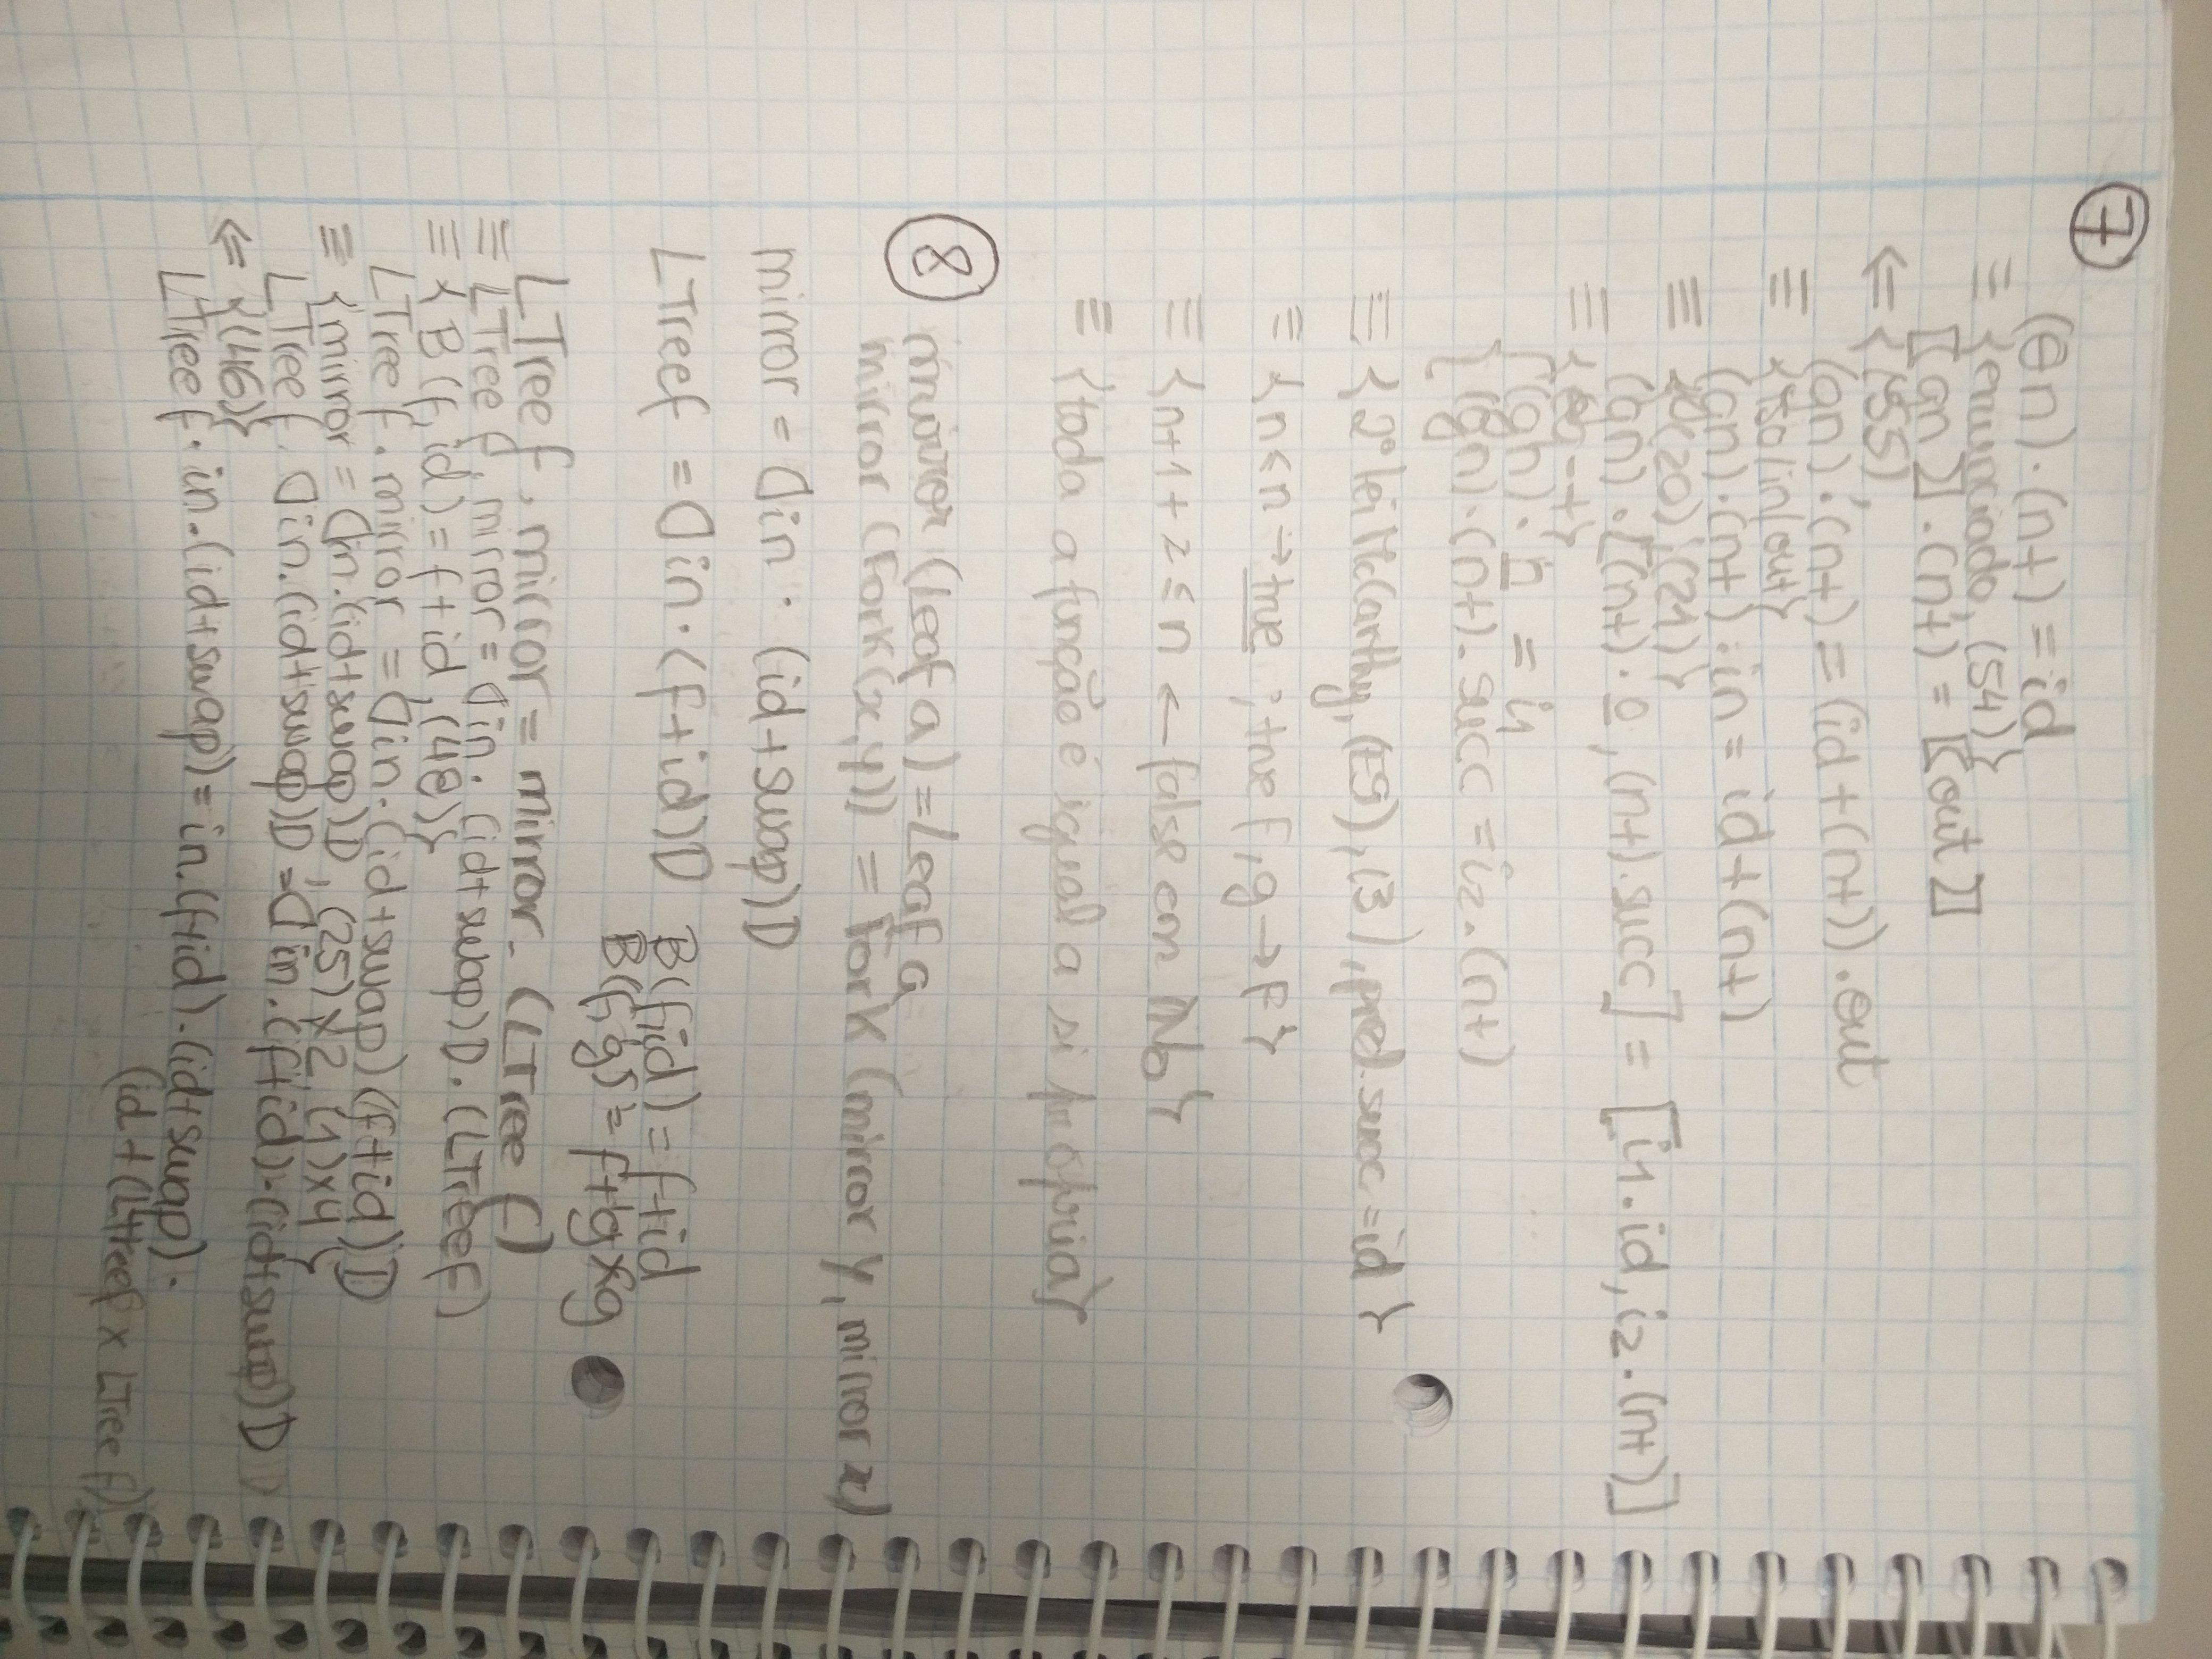 7
(⊖n)·(n+) = id
≡ {enunciado, (54)}
[(gn)]·(n+) = [(out)]
⇐ {(55),
(gn)·(n+) = (id+(n+)).out
≡ {iso/in/out}
(gn)·(n+)·in = id+(n+)
≡ {(20);(21)}
(gn)·[(n+)·0, (n+).succ] = [i1.id, i2.(n+)]
≡ {Eq-+}
{ (gn)·n = i1
(gn)·(n+).succ = i2.(n+)
≡ {2º lei McCarthy, , (3), pred.succ=id}
≡ {n≤n → true ; true f, g → f}
≡ {n+1+z≤n ← false em ℕ0}
≡ {toda a função é igual a si própria}
8
mirror (Leaf a) = Leaf a
mirror (Fork(x,y)) = Fork (mirror y, mirror x)
mirror = ⦇in · (id+swap)⦈
LTree f = ⦇in·(f+id)⦈ B(f,id) = f+id
B(f,g) = f+g×g
LTree f . mirror = mirror . (LTree f)
≡ LTree f . mirror = ⦇in.(id+swap)⦈.(LTree f)
≡ {B(f,id) = f+id, (48)}
LTree f . mirror = ⦇in.(id+swap)(f+id)⦈
≡ {mirror = ⦇in.(id+swap)⦈, (25)×2, (1)×4}
LTree f. ⦇in.(id+swap)⦈ = ⦇in.(f+id)·(id+swap)⦈
⇐ {(46)}
LTree f·in.(id+swap) = in.(f+id).(id+swap).
(id + (LTree f × LTree f))